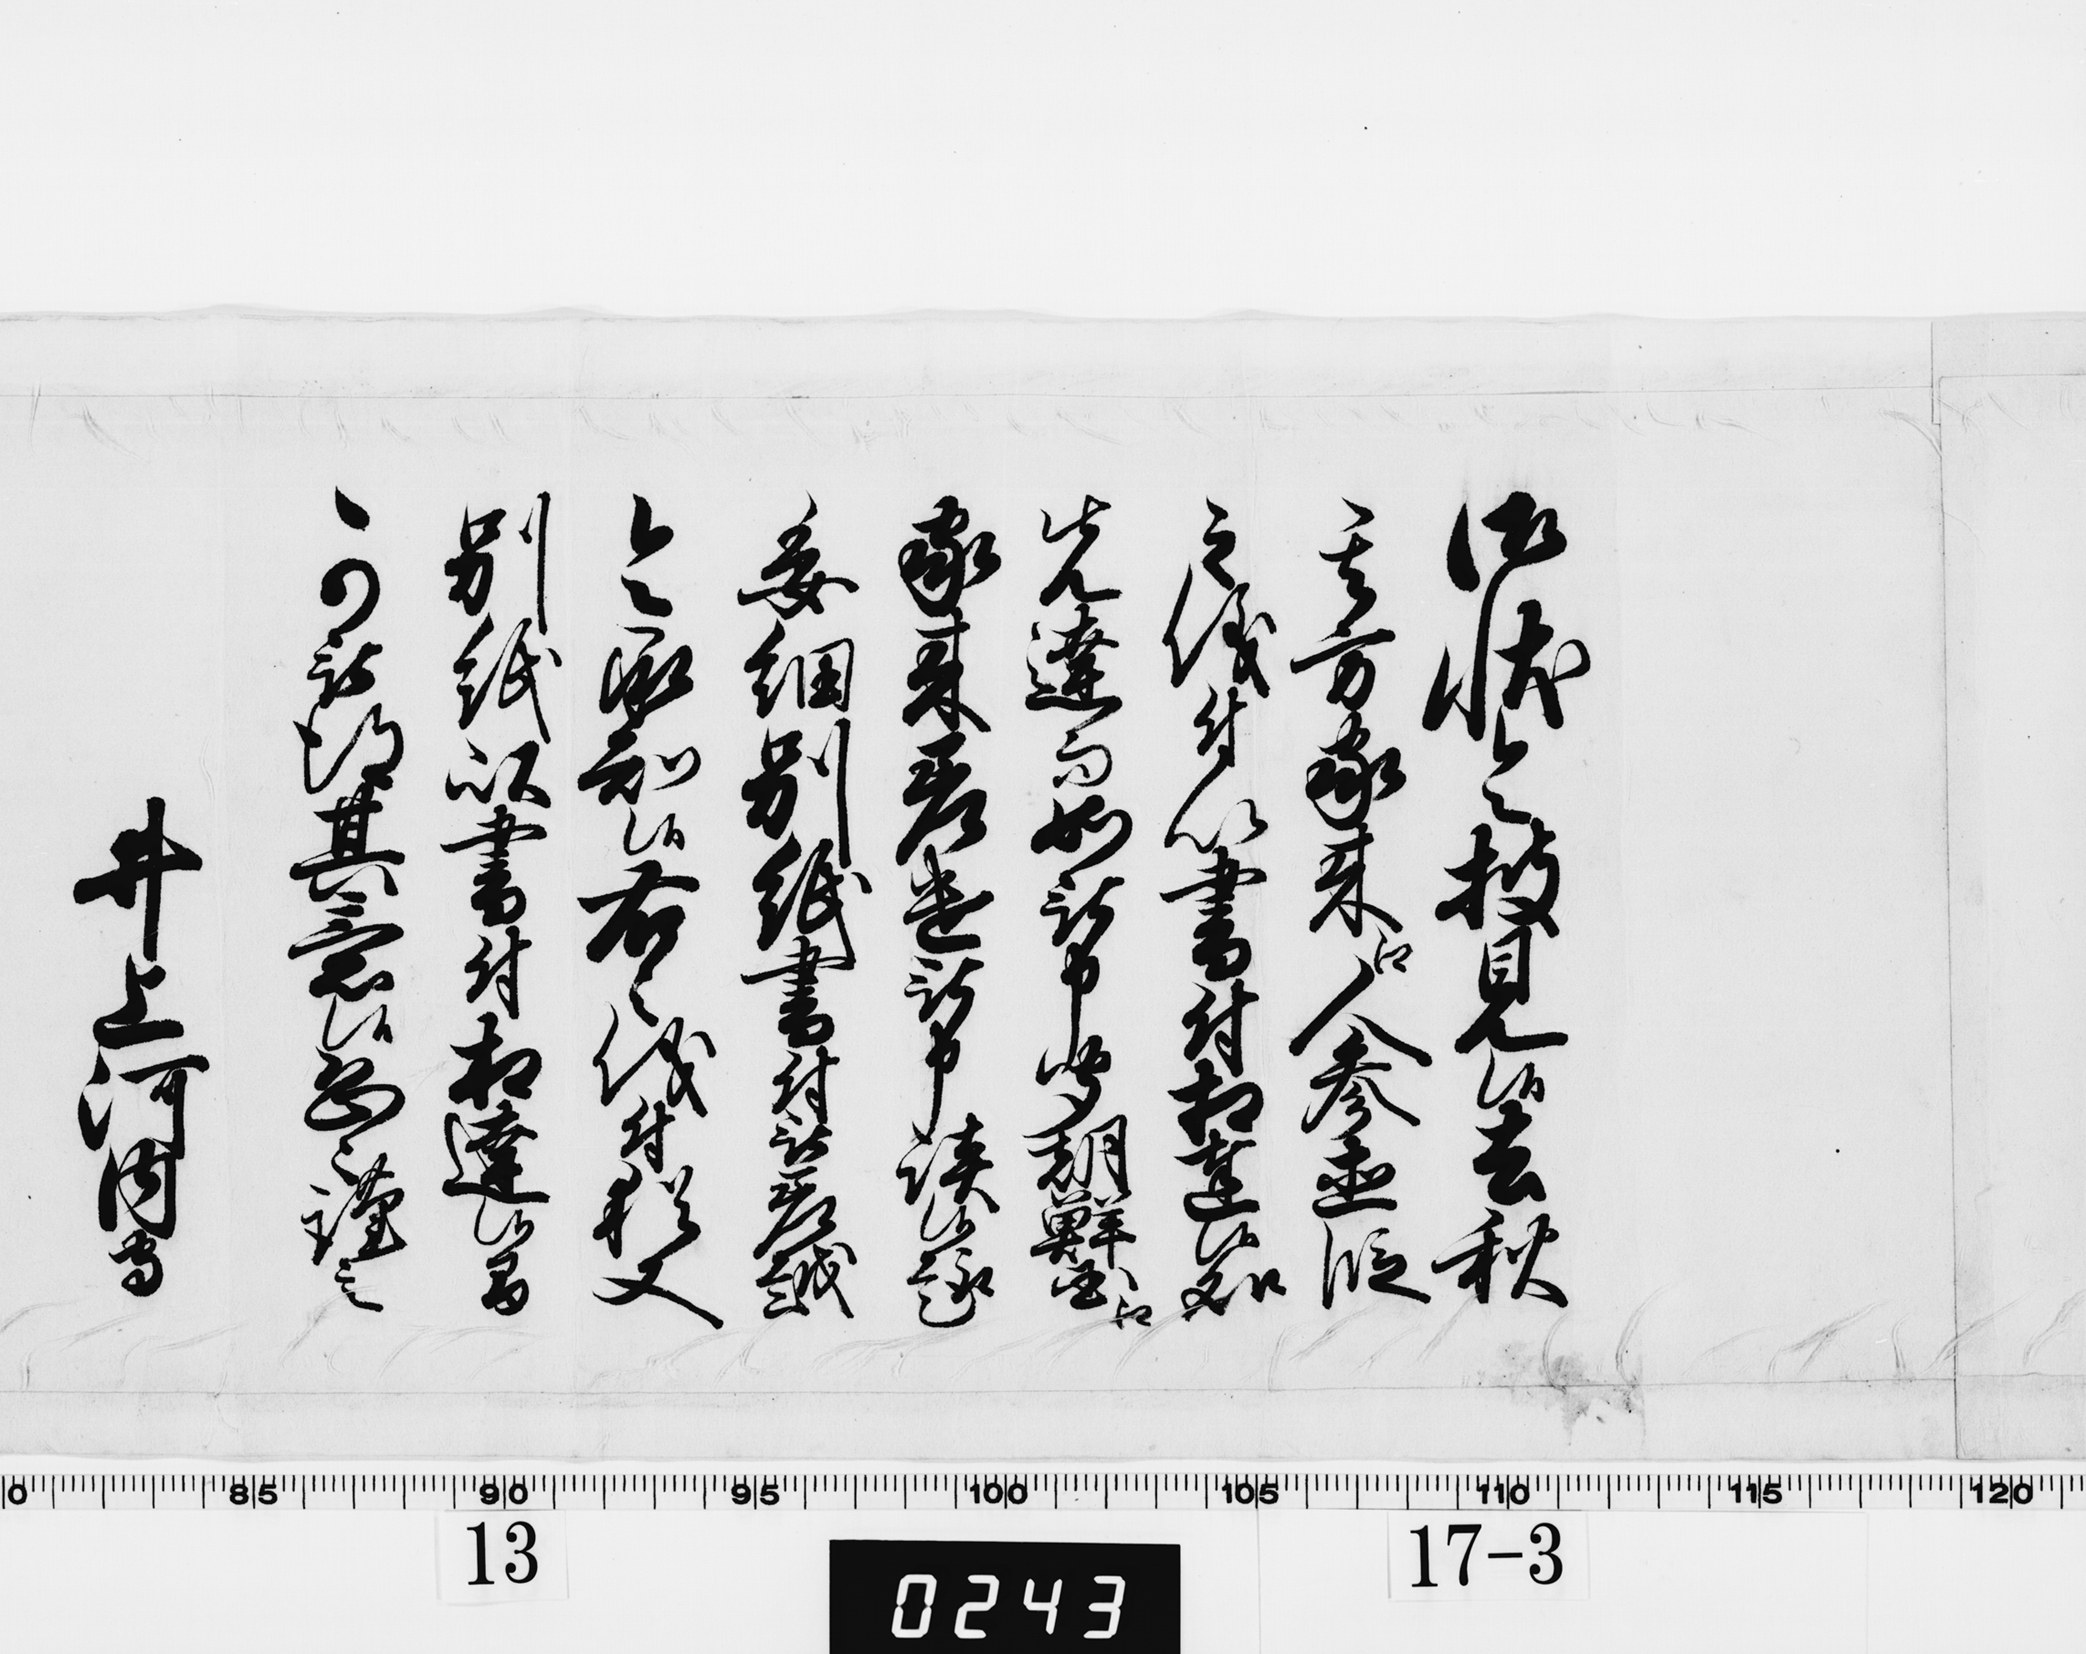 御状令披見候去秋
其方家来江人参並仮
之儀付以書付相達候処
先達而如被申聞朝鮮国江
家来差遣被申談候趣
委細別紙書付被差越
令承知候右之儀付猶又
別紙以書付相達候間
可被得其意候恐々謹言
井上河内守
85 90 95 100 105 110 115 120
13
17-3
0243